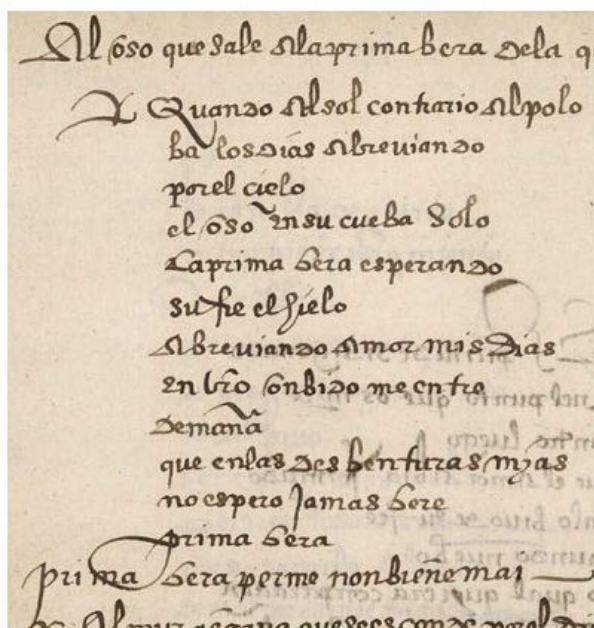 Al oso que sale a la prima bera de la q
Quando al sol contrario al polo
ba los dias abreviando
por el cielo
el oso en su cueba solo
la prima bera esperando
sufre el hielo
abreviando amor mis dias
en bro me entre
de mana
que en las desbenturas myas
no espero jamas bere
prima bera
prima bera per me non biene mai